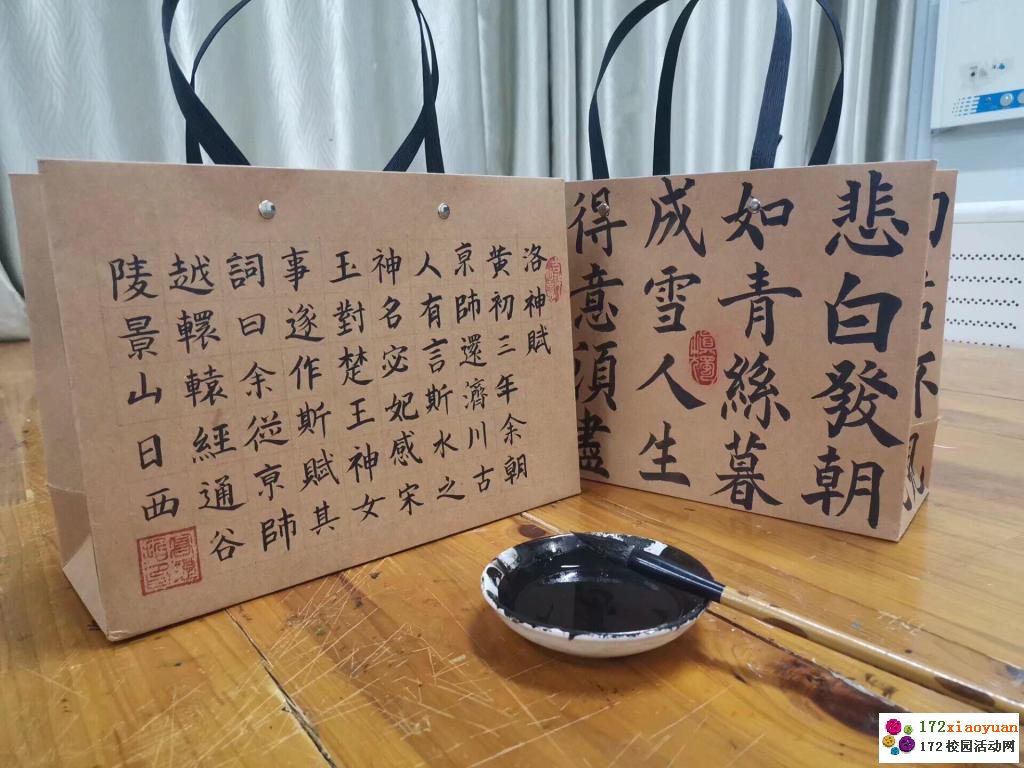 洛神賦
黄初三年余朝
亰師還濟川古
人有言斯水之
神名宓妃感宋
玉對楚王神女
事遂作斯賦其
詞曰余從亰師
越轘轅經通谷
陵景山日西
悲白發朝
如青絲暮
成雪人生
得意須盡
172xiaoyuan
172校园活动网